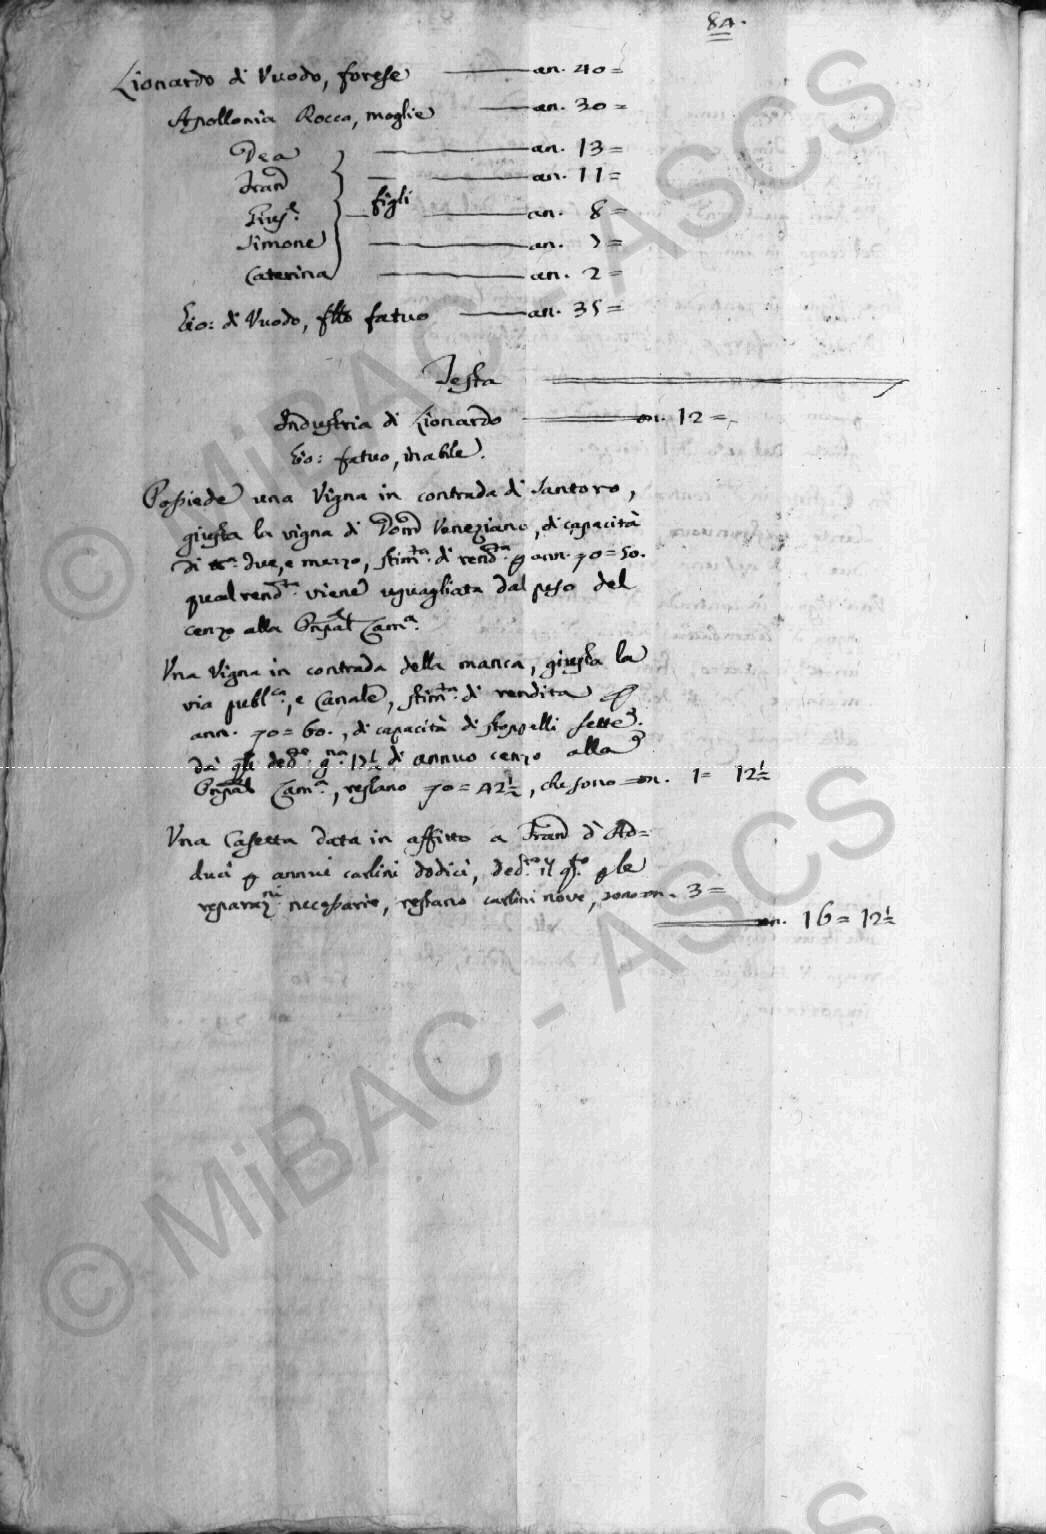 84.
Lionardo di Vuodo, forese —— an. 40=
Apollonia Rocco, moglie —— an. 30=
Dea —— an. 13=
Fran.co —— an. 11=
figli
Gius.e —— an. 8=
Simone —— an. 7=
Caterina —— an. 2=
Gio: di Vuodo, f̃llo fatuo —— an. 35=
Testa
Industria di Lionardo —— on. 12=
Gio: fatuo, inabile.
Possiede una Vigna in contrada di Santoro,
giusta la vigna di Dom.co Veneziano, di capacità
di due, e mezzo, stim.ta di rend.ta p ann. 70=50.
qual rend.ta viene uguagliata dal peso del
cenzo alla Cam.a
Una Vigna in contrada della manca, giusta la
via publ.ca, e Canale, stim.ta di rendita p
ann. 70=60., di capacità di stoppelli sette.
Da q̃li ded.e g.na 17½ di annuo cenzo alla
Cam.a, restano 70=42½, che sono on. 1= 12½
Una Casetta data in affitto a Fran.co d'Ad=
duci p annui carlini dodici, ded.to il q.to p le
reparaz.ni necessarie, restano carlini nove, sono on. 3=
on. 16=12½
© MiBAC - ASCS
© MiBAC - ASCS